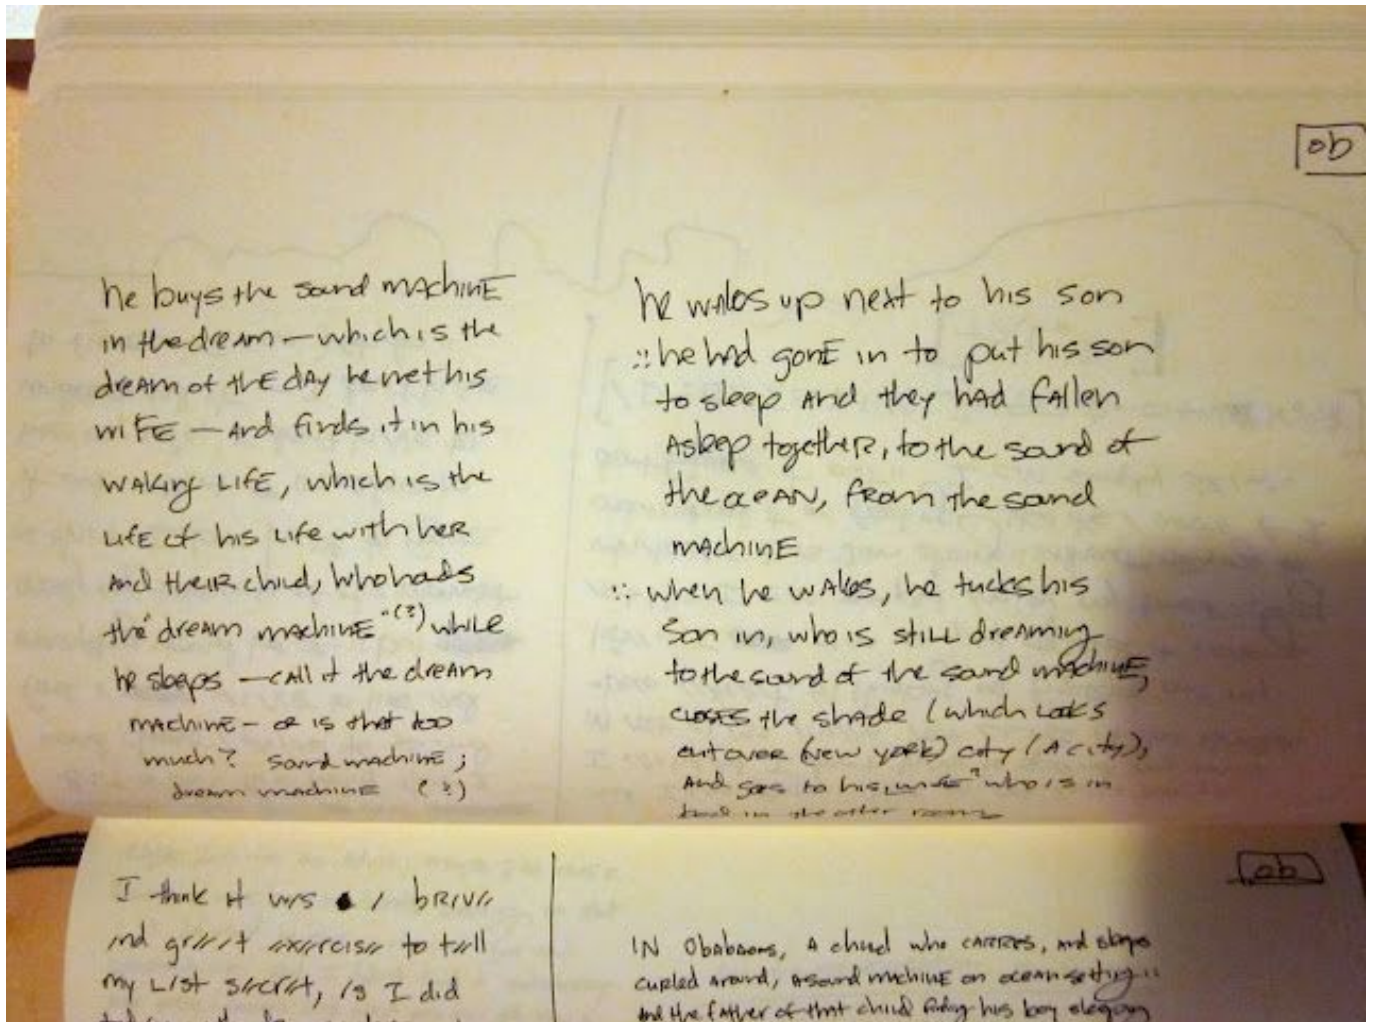 ob
he buys the sound machine
in the dream — which is the
dream of the day he met his
wife — and finds it in his
waking life, which is the
life of his life with her
and their child, who holds
the "dream machine"(?) while
he sleeps — call it the dream
machine — or is that too
much? sound machine;
dream machine (?)
he wakes up next to his son
:: he had gone in to put his son
to sleep and they had fallen
asleep together, to the sound of
the ocean, from the sound
machine
:: when he wakes, he tucks his
son in, who is still dreaming
to the sound of the sound machine,
closes the shade (which looks
out over (New York) city (a city),
and goes to his wife? who is in
bed in the other room
ob
I think it w/s / br/v//
/nd gr///t //x//rcis// to t//ll
my l/st s//cr//t, /s I did
IN Obabaoms, a child who carries, and sleeps
curled around, a sound machine on ocean setting ::
and the father of that child finding his boy sleeping